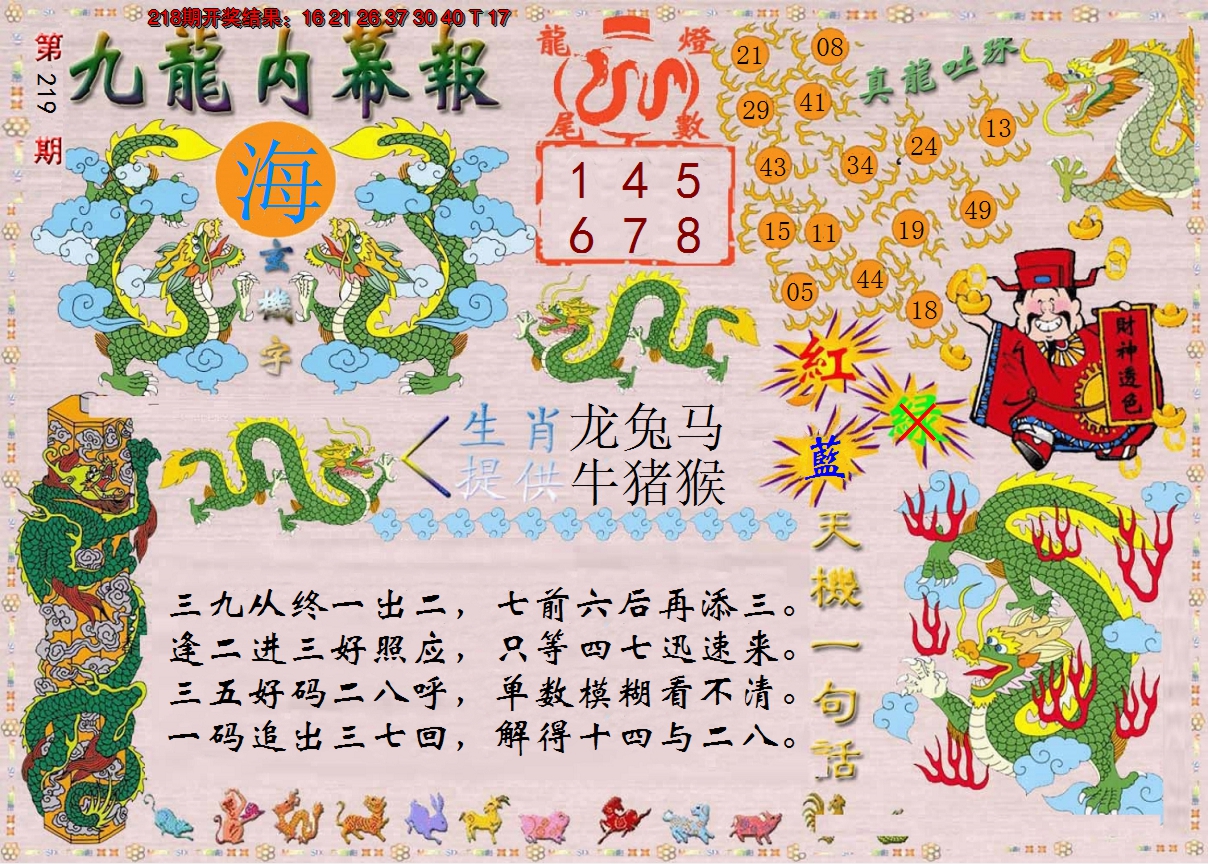 218期开奖结果：16 21 26 37 30 40 T 17
第219期
九龍内幕報
海
玄機字
龍燈
尾數
1 4 5
6 7 8
真龍吐珠
21 08
29 41
43 34 24 13
15 11 19 49
05 44 18
財神透色
紅
绿
藍
生肖 龙兔马
提供 牛猪猴
天機一句話
三九从终一出二，七前六后再添三。
逢二进三好照应，只等四七迅速来。
三五好码二八呼，单数模糊看不清。
一码追出三七回，解得十四与二八。